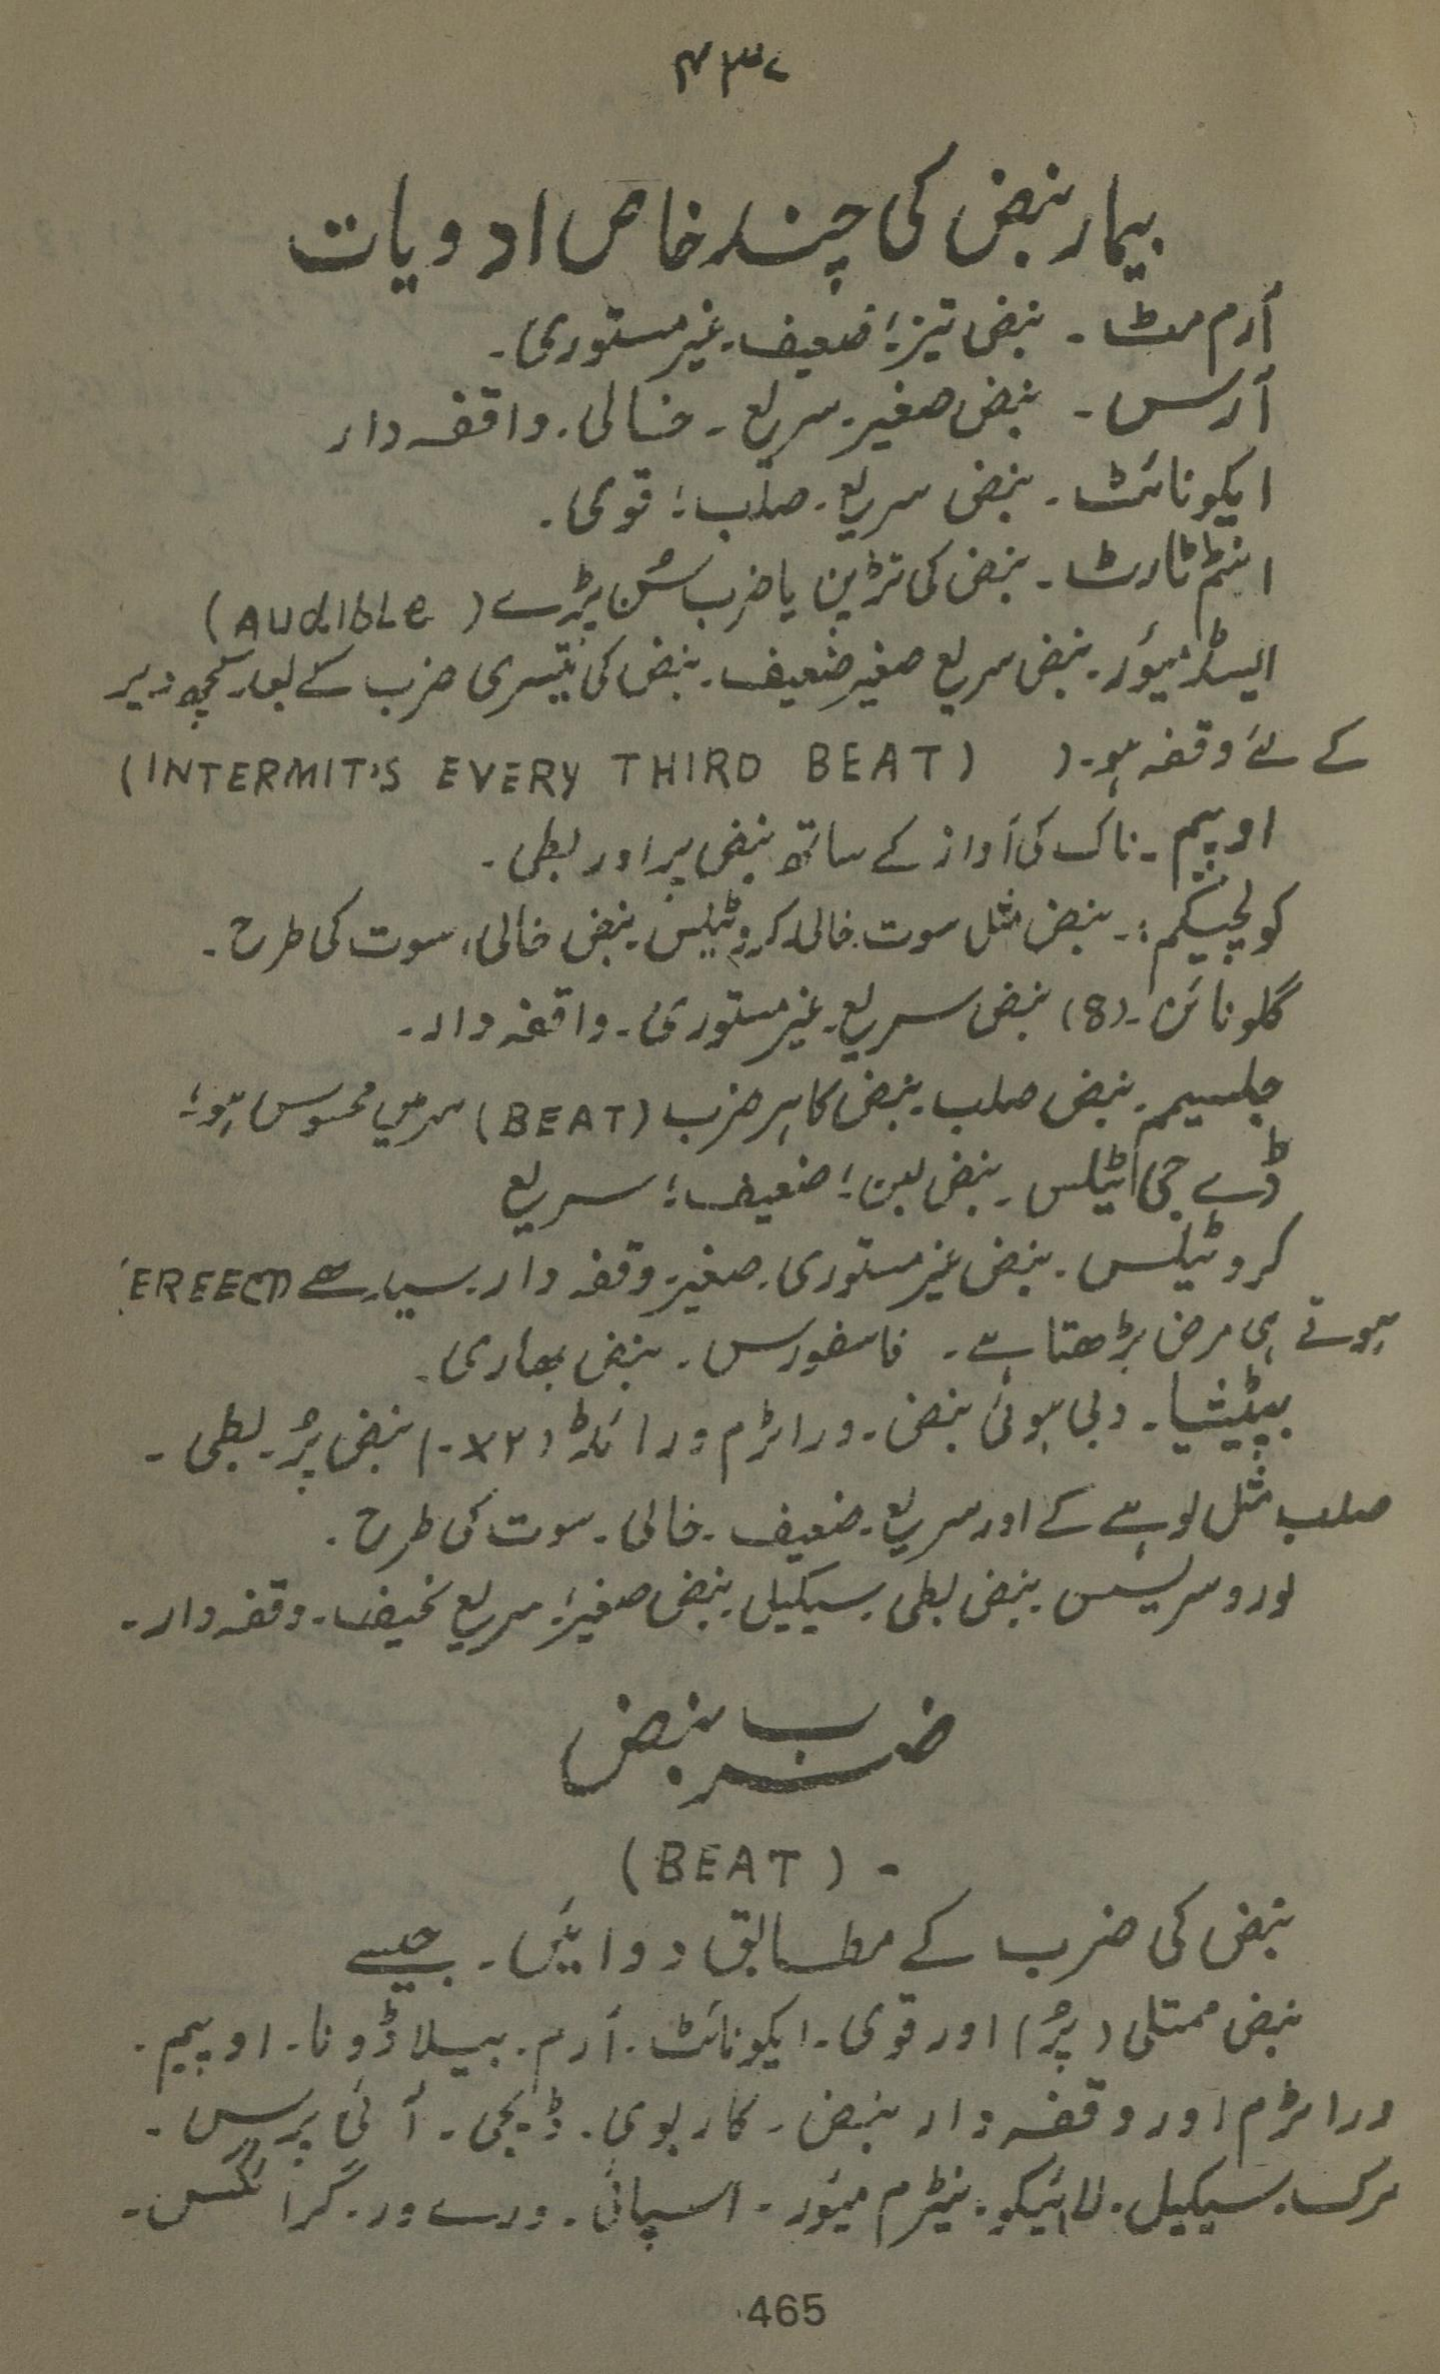 ۴۳۷
بیمار نبض کی چند خاص ادویات
آرم مٹ ۔ نبض تیز؛ ضعیف۔ غیر مستوری۔
آرس ۔ نبض صغیر۔ سریع ۔ خالی۔ واقفہ دار
ایکونائٹ ۔ نبض سریع۔ صلب؛ قوی۔
انٹم ٹارٹ ۔ نبض کی تڑپن یا ضرب سُن پڑے (AUdIbLe)
ایسڈ میور۔ نبض سریع صغیر ضعیف۔ نبض کی تیسری ضرب کے بعد کچھ دیر
کے لئے وقفہ ہو۔ (INTERMIT'S EVERY THIRD BEAT)
اوپیم ۔ ناک کی آواز کے ساتھ نبض پر اور بطی ۔
کولچیکم :۔ نبض مثل سوت۔ خالی۔ کروٹیلس نبض خالی، سوت کی طرح ۔
گلونائن ۔ (8) نبض سریع۔ غیر مستوری ۔ واقفہ دار ۔
جلسیم ۔ نبض صلب ۔ نبض کا ہر ضرب (BEAT) سر میں محسوس ہو؛
ڈے جی اٹیلس ۔ نبض لین؛ ضعیف؛ سریع
کروٹیلس ۔ نبض غیر مستوری۔ صغیر۔ وقفہ دار۔ سیدھے EREECT
ہوتے ہی مرض بڑھتا ہے ۔ فاسفورس ۔ نبض بھاری۔
بپٹیشیا ۔ دبی ہوئی نبض ۔ وراٹرم ورائڈ (۲x۔) نبض پُر۔ بطی ۔
صلب مثل لوہے کے اور سریع۔ ضعیف ۔ خالی ۔ سوت کی طرح ۔
لوروسریسس نبض بطی۔ سیکیل نبض صغیر؛ سریع نحیف۔ وقفہ دار ۔
ضرب نبض
(BEAT) ۔
نبض کی ضرب کے مطابق دوائیں ۔ جیسے
نبض ممتلی (پُر) اور قوی ۔ ایکونائٹ ۔ آرم ۔ بیلاڈونا ۔ اوپیم ۔
وراٹرم اور وقفہ دار نبض ۔ کاربوی ۔ ڈیجی ۔ آئی برس ۔
مرک ۔ سیکیل ۔ لائیکو ۔ نیٹرم میور ۔ اسپائی ۔ ورے ور ۔
465